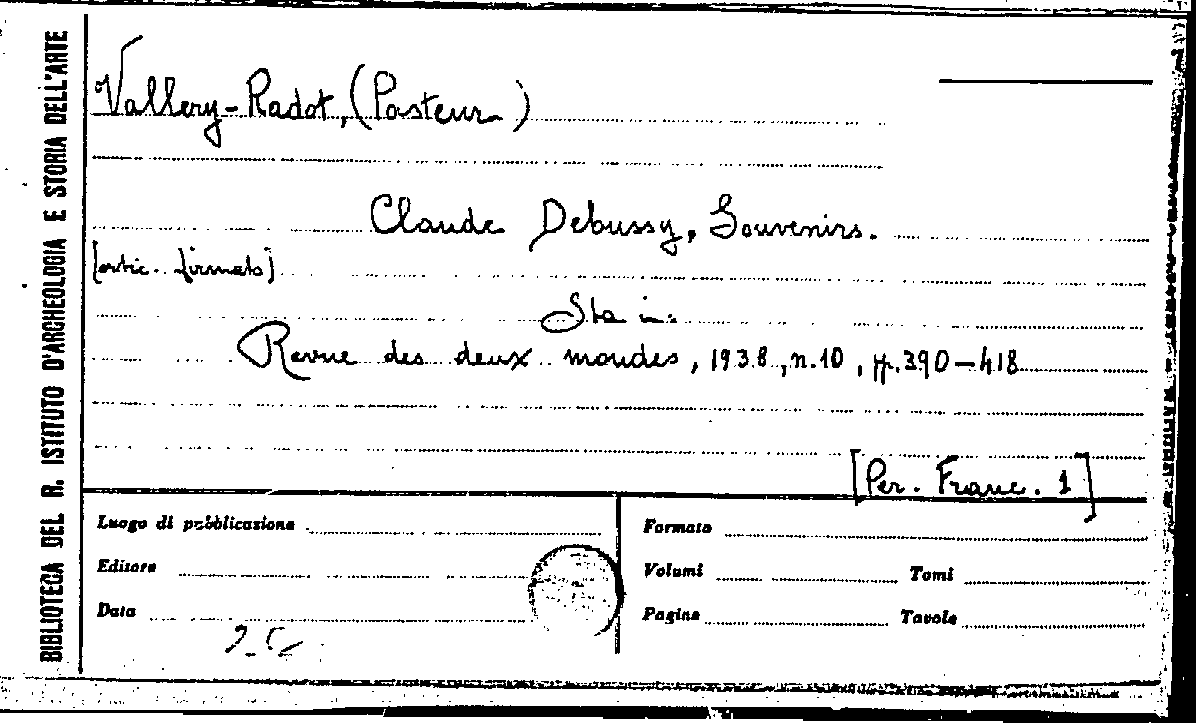 BIBLIOTECA DEL R. ISTITUTO D'ARCHEOLOGIA E STORIA DELL'ARTE
Vallery-Radot, (Pasteur)
Claude Debussy, Souvenirs.
[artic. firmato]
Sta in:
Revue des deux mondes, 1938, n.10, pp.390-418
[Per. Franc. 1]
Luogo di pubblicazione
Editore
Data
Formato
Volumi Tomi
Pagine Tavole